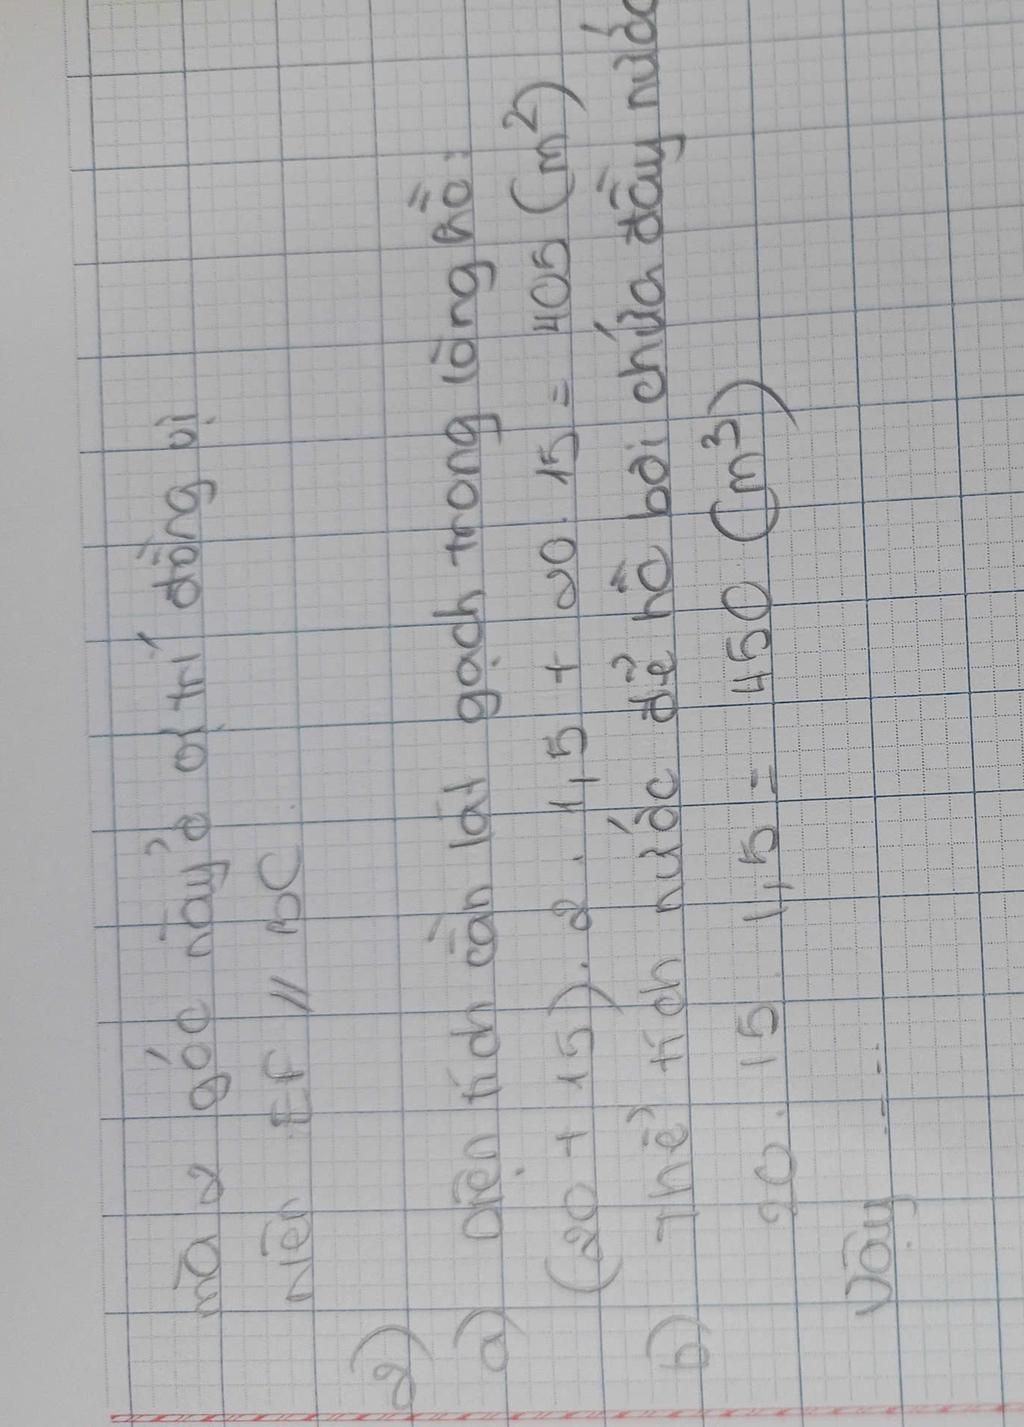 mà 2 góc này ở vị trí đồng vị
Nên EF // BC.
2)
a) Diện tích cần lát gạch trong lòng hồ:
(20 + 15). 2. 1,5 + 20. 15 = 405 (m²)
b) Thể tích nước để hồ bơi chứa đầy nước
20. 15. 1,5 = 450 (m³)
Vậy ----